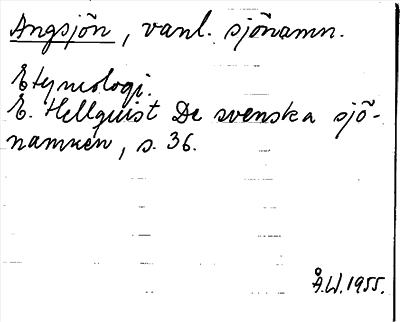 Ångsjön, vanl. sjönamn.
Etymologi.
E. Hellquist De svenska sjö-
namnen, s. 36.
Å.W. 1955.